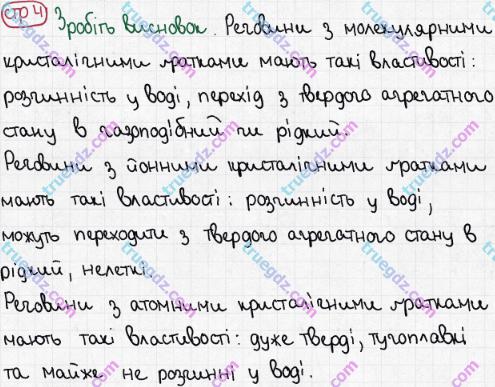 СТО 4 Зробіть висновок. Речовини з молекулярними
кристалічними ґратками мають такі властивості:
розчинність у воді, перехід з твердого агрегатного
стану в газоподібний чи рідкий.
Речовини з йонними кристалічними ґратками
мають такі властивості: розчинність у воді,
можуть переходити з твердого агрегатного стану в
рідкий, нелеткі.
Речовини з атомними кристалічними ґратками
мають такі властивості: дуже тверді, тугоплавкі
та майже не розчинні у воді.